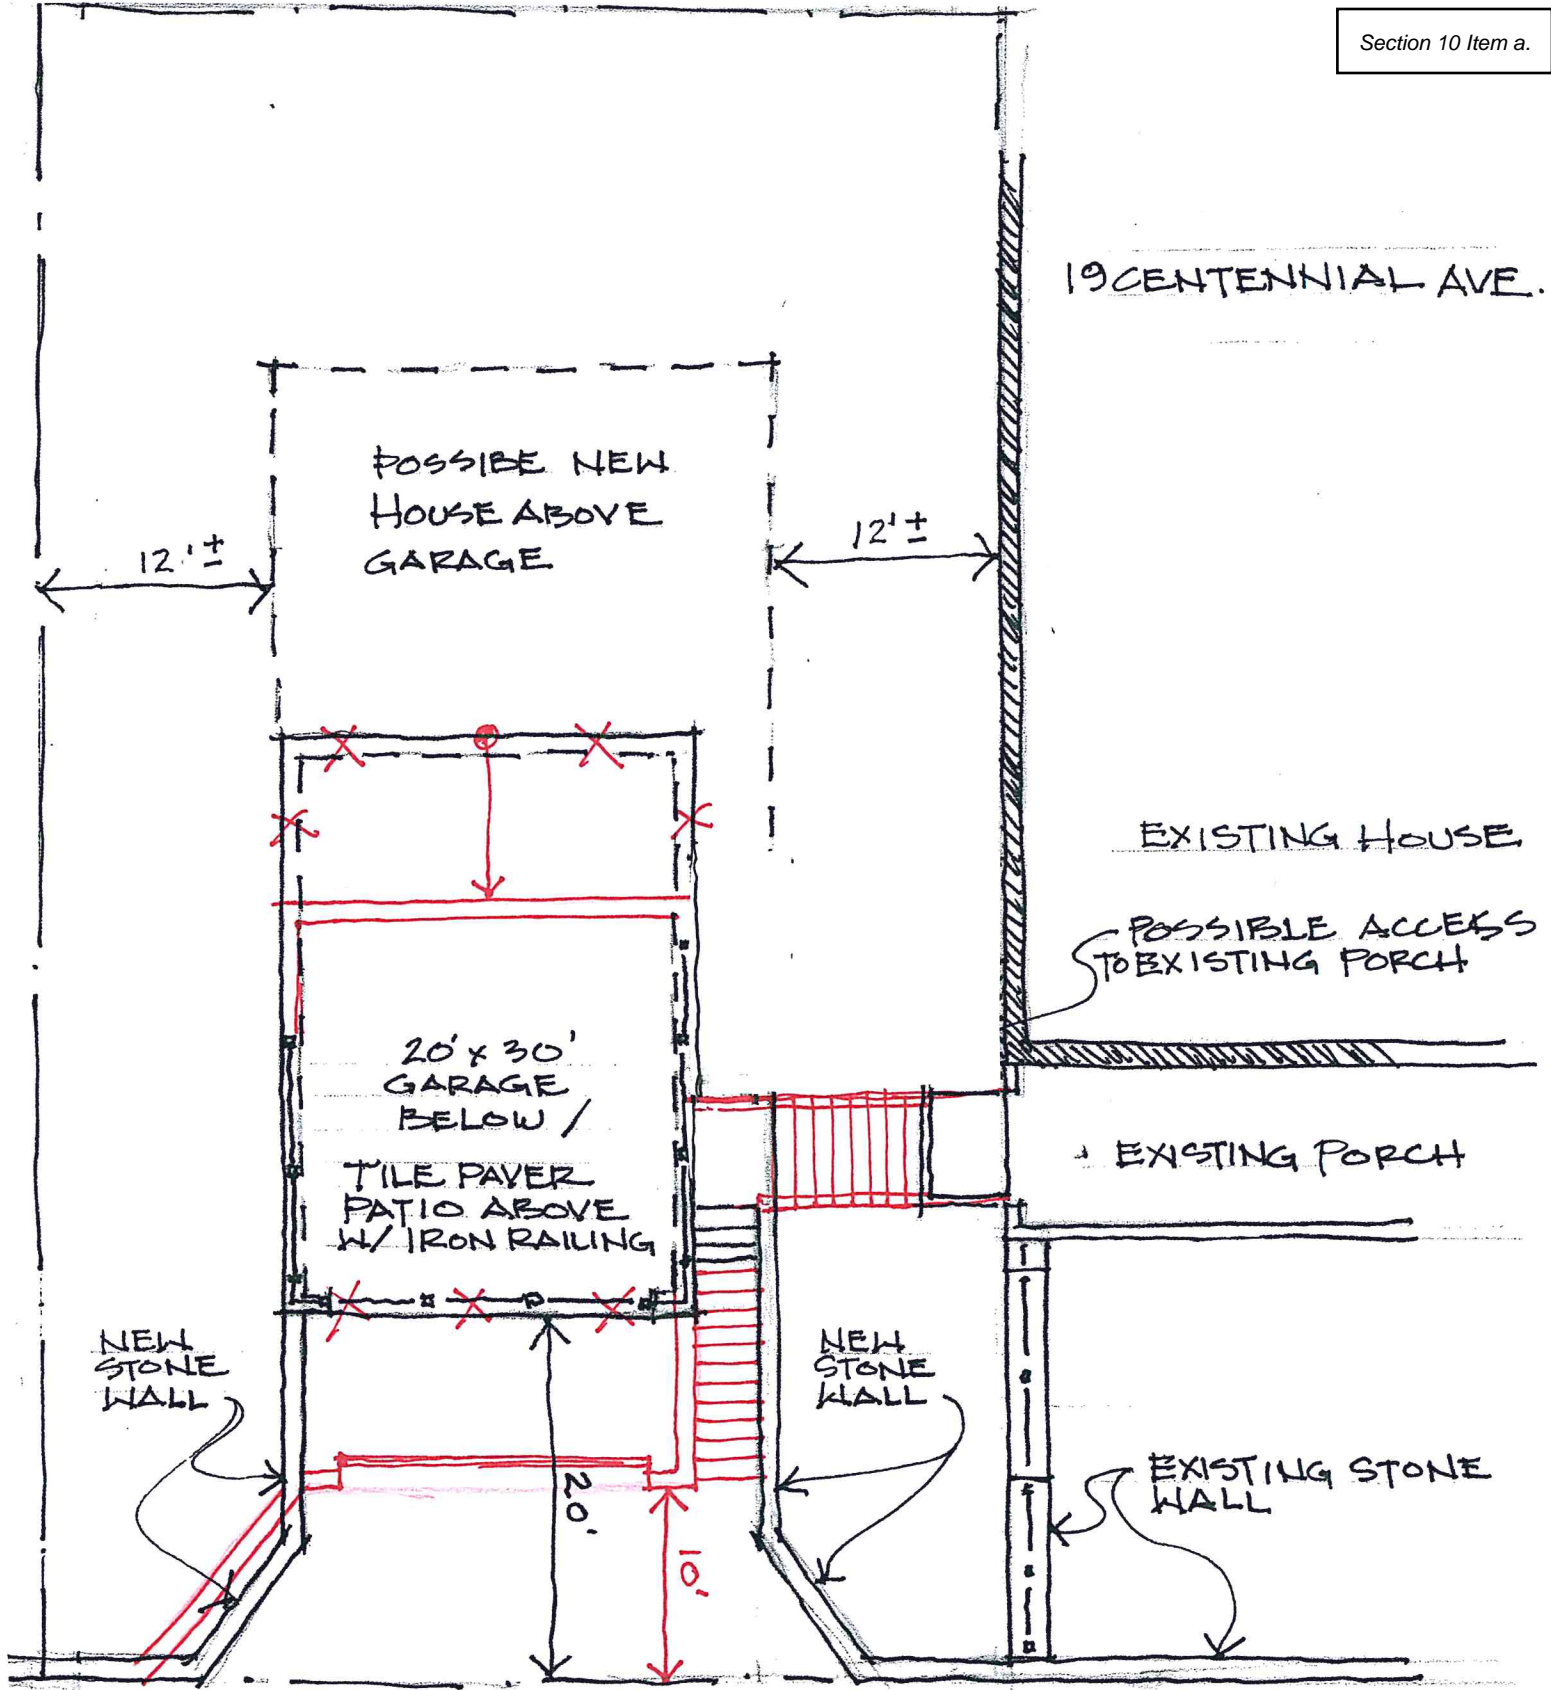 Section 10 Item a.
19 CENTENNIAL AVE.
POSSIBE NEW
HOUSE ABOVE
GARAGE
12'±
12'±
EXISTING HOUSE
POSSIBLE ACCESS
TO EXISTING PORCH
20' x 30'
GARAGE
BELOW /
TILE PAVER
PATIO ABOVE
W/ IRON RAILING
EXISTING PORCH
NEW
STONE
WALL
NEW
STONE
WALL
EXISTING STONE
WALL
20'
10'